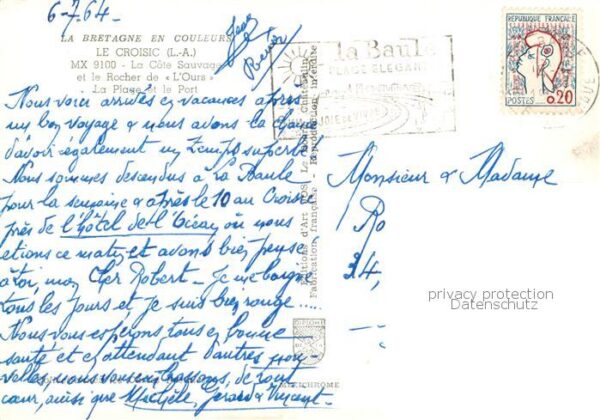 6-7-64-
LA BRETAGNE EN COULEURS
LE CROISIC (L.-A.)
MX 9100 - La Côte Sauvage
et le Rocher de « L'Ours »
La Plage et le Port
Nous voici arrivés en vacances après
un bon voyage & nous avons la chance
d'avoir également un temps superbe.
Nous sommes descendus à La Baule
pour la semaine & après le 10 au Croisic
près de l'hôtel de l'Océan où nous
etions ce matin et avons bien pensé
à toi, mon cher Robert - Je me baigne
tous les jours et je suis bien rouge.....
Nous vous espérons tous en bonne
santé et en attendant d'autres nou-
velles, nous vous embrassons, de tout
cœur, ainsi que Michèle, Gérard & Vincent.
la Baule
PLAGE ELEGANTE
JOIE DE VIVRE
Editions d'Art
Fabrication française - Reproduction interdite
MEXICHROME
REPUBLIQUE FRANÇAISE
POSTES 0,20
Monsieur & Madame
Ro
34,
privacy protection
Datenschutz